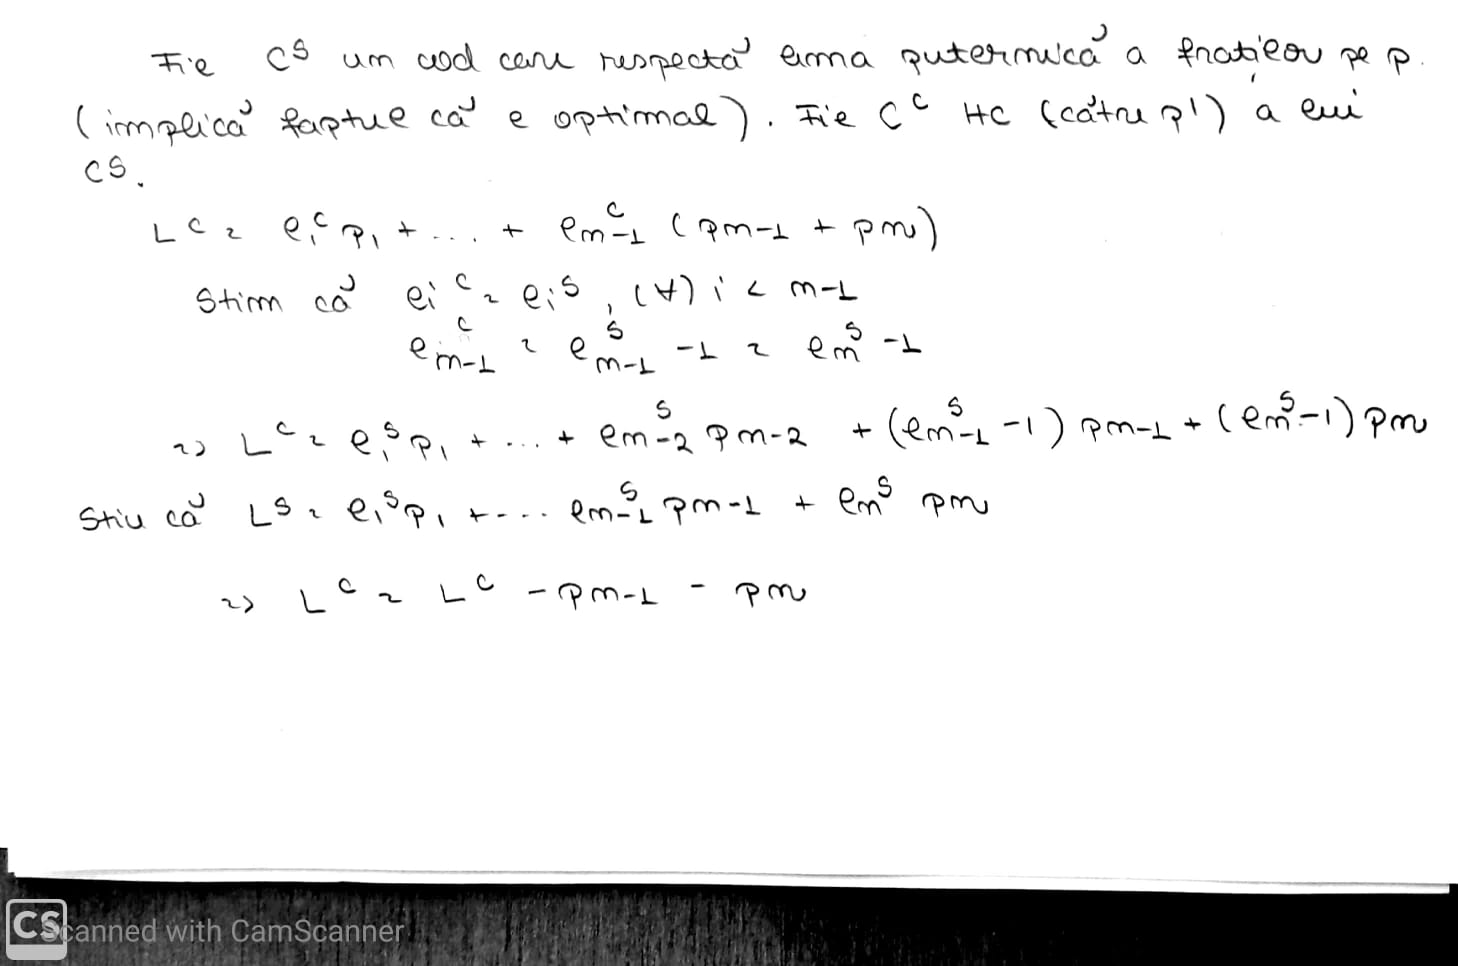 Fie C^S um cod care respectă lema puternică a fraților pe p.
(implică faptul că e optimal). Fie C^C HC (către p') a lui
C^S.
L^C = l_1^C p_1 + ... + l_{m-1}^C (p_{m-1} + p_m)
Stim că l_i^C = l_i^S, (∀) i < m-1
l_{m-1}^C = l_{m-1}^S - 1 = l_m^S - 1
=> L^C = l_1^S p_1 + ... + l_{m-2}^S p_{m-2} + (l_{m-1}^S - 1) p_{m-1} + (l_m^S - 1) p_m
Stiu că L^S = l_1^S p_1 + ... l_{m-1}^S p_{m-1} + l_m^S p_m
=> L^C = L^C - p_{m-1} - p_m
CS Scanned with CamScanner